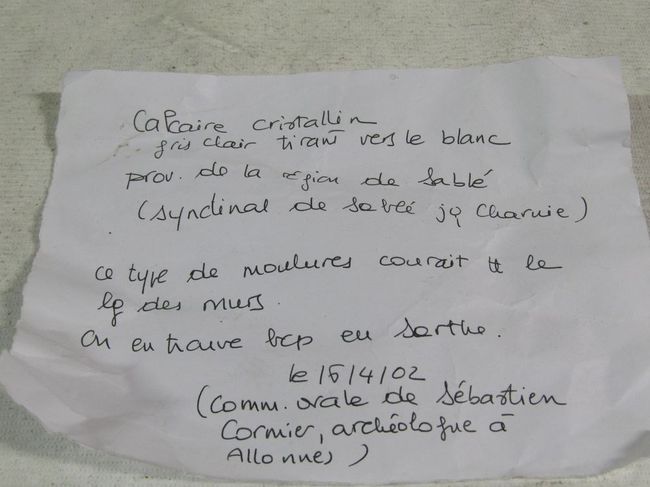 Calcaire cristallin
gris clair tirant vers le blanc
prov. de la région de Sablé
(synclinal de Sablé jq Charnie)
ce type de moulures courait tt le
lg des murs.
On en trouve bcp en Sarthe.
le 15/4/02
(comm. orale de Sébastien
Cormier, archéologue à
Allonnes)